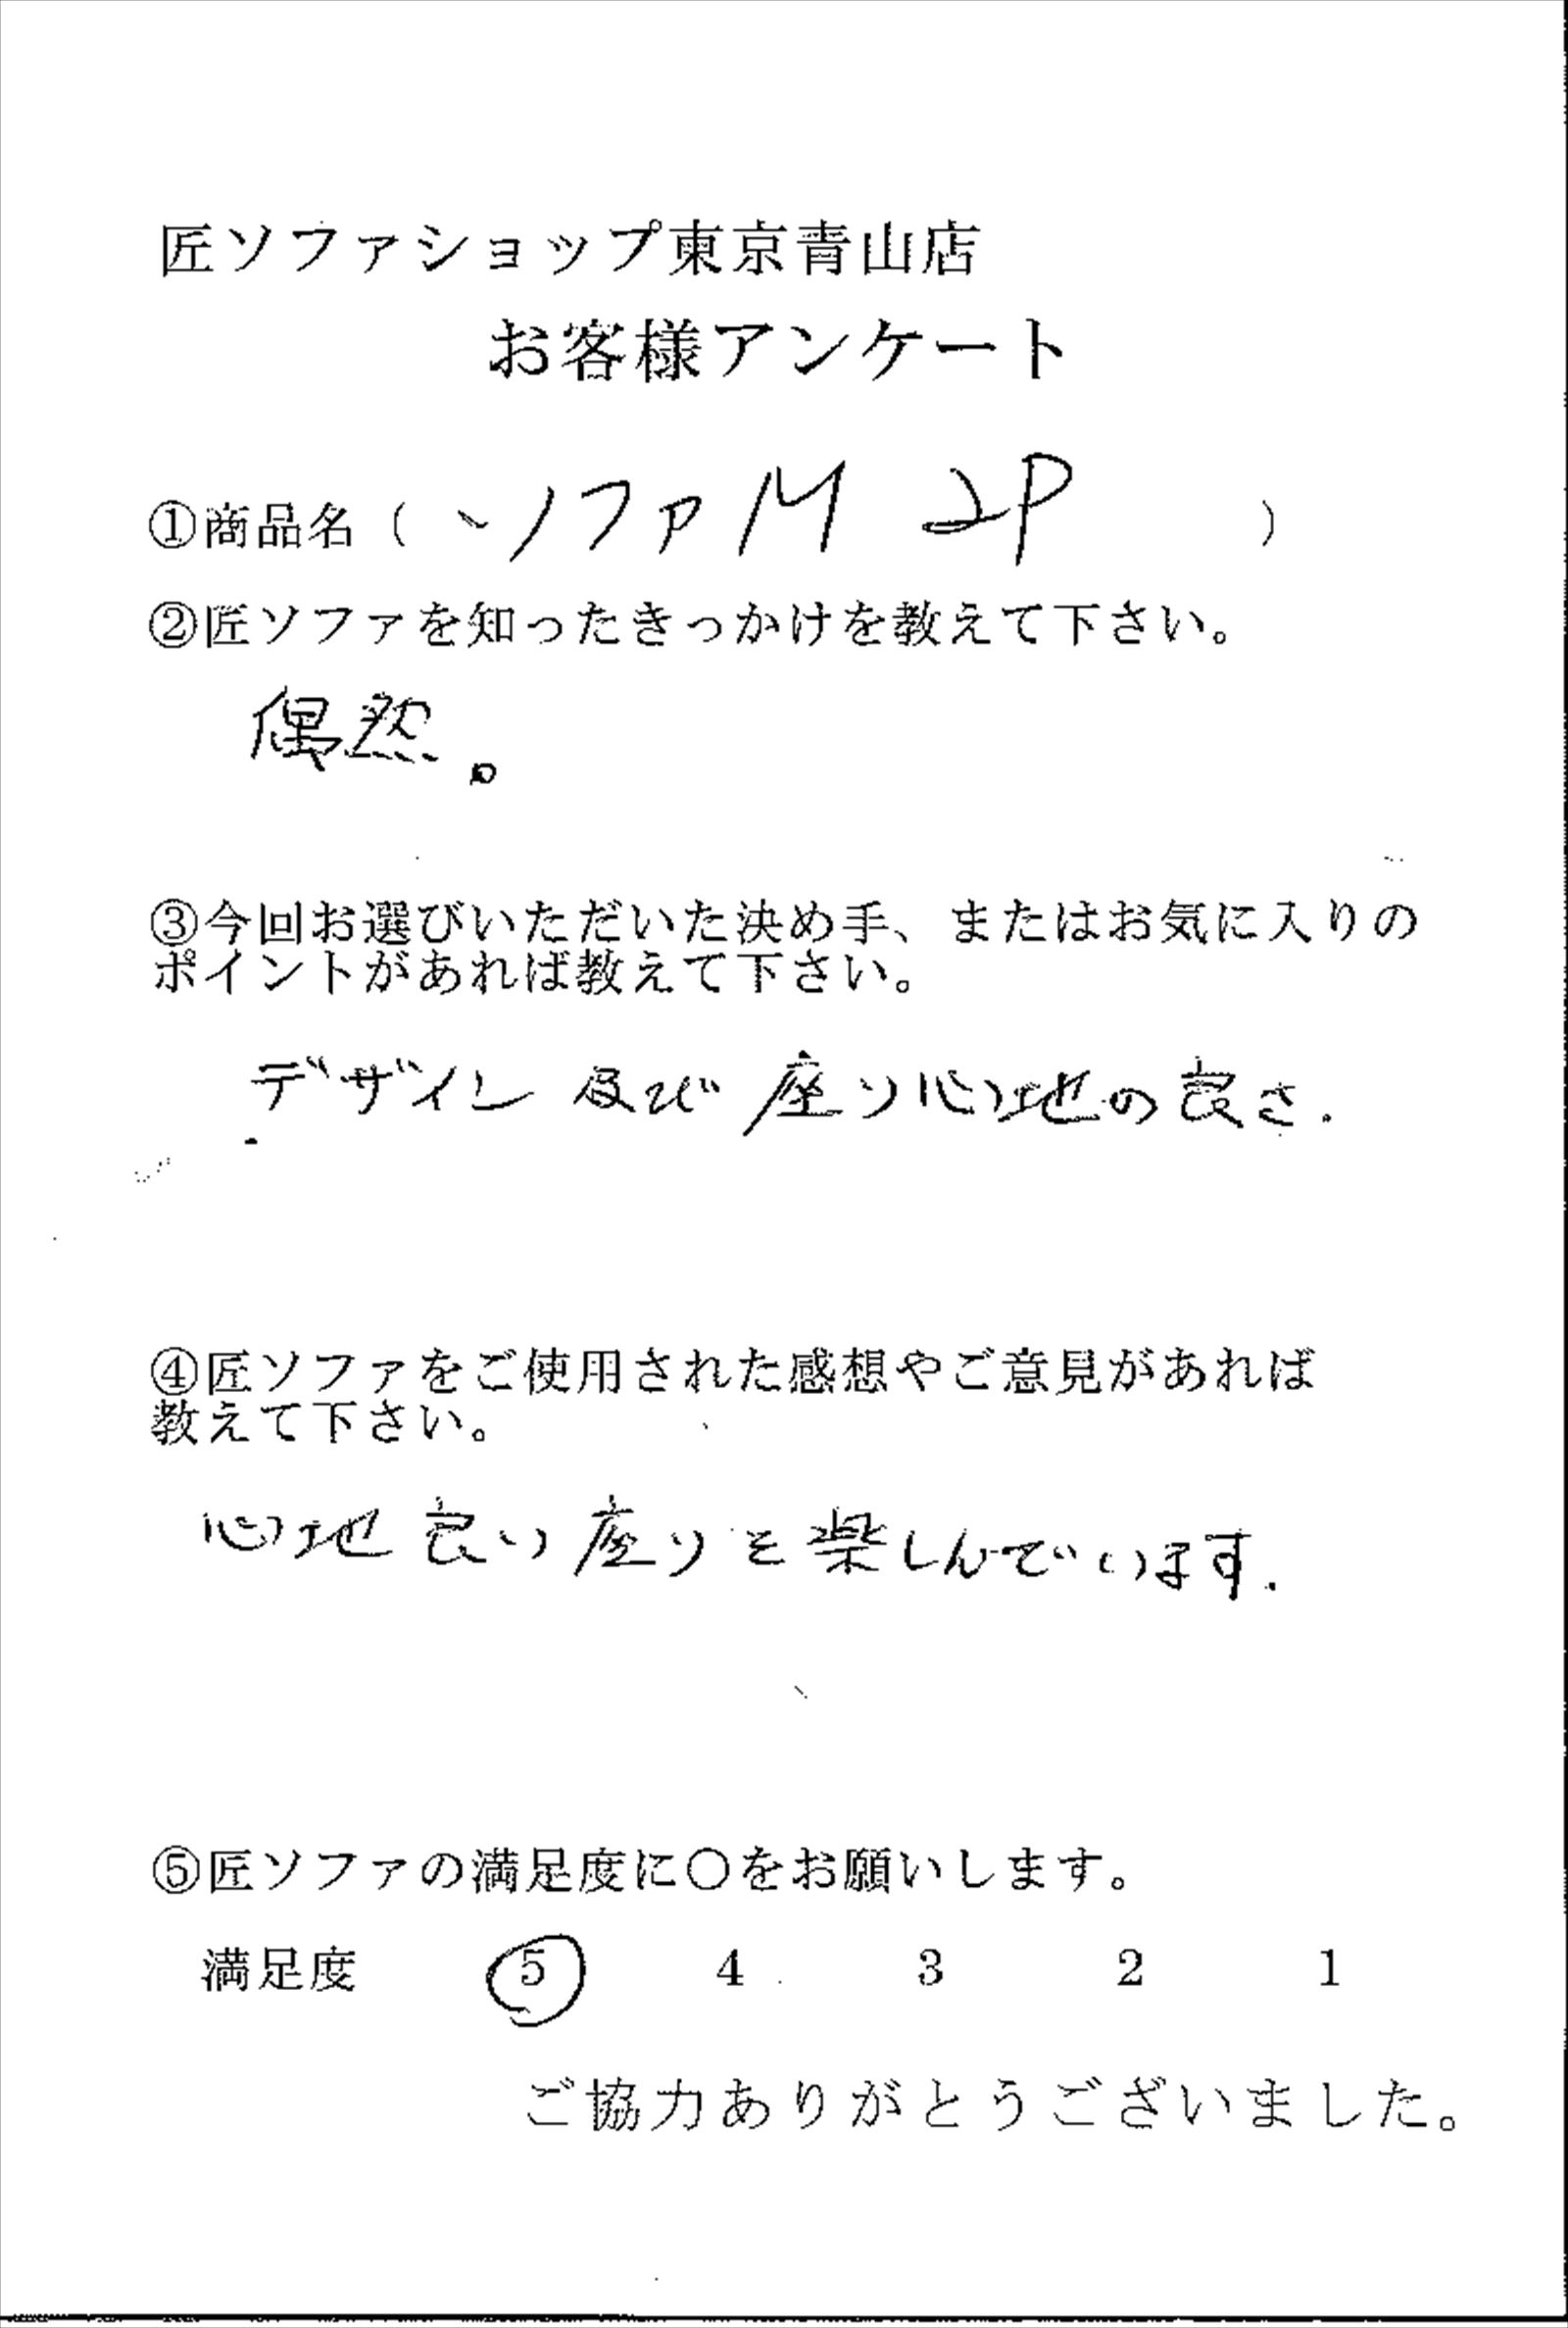 匠ソファショップ東京青山店
お客様アンケート
①商品名（ ソファM 2P ）
②匠ソファを知ったきっかけを教えて下さい。
偶然。
③今回お選びいただいた決め手、またはお気に入りの
ポイントがあれば教えて下さい。
デザイン及び座り心地の良さ.
④匠ソファをご使用された感想やご意見があれば
教えて下さい。
心地良い座りを楽しんでいます.
⑤匠ソファの満足度に〇をお願いします。
満足度 5 4 3 2 1
ご協力ありがとうございました。